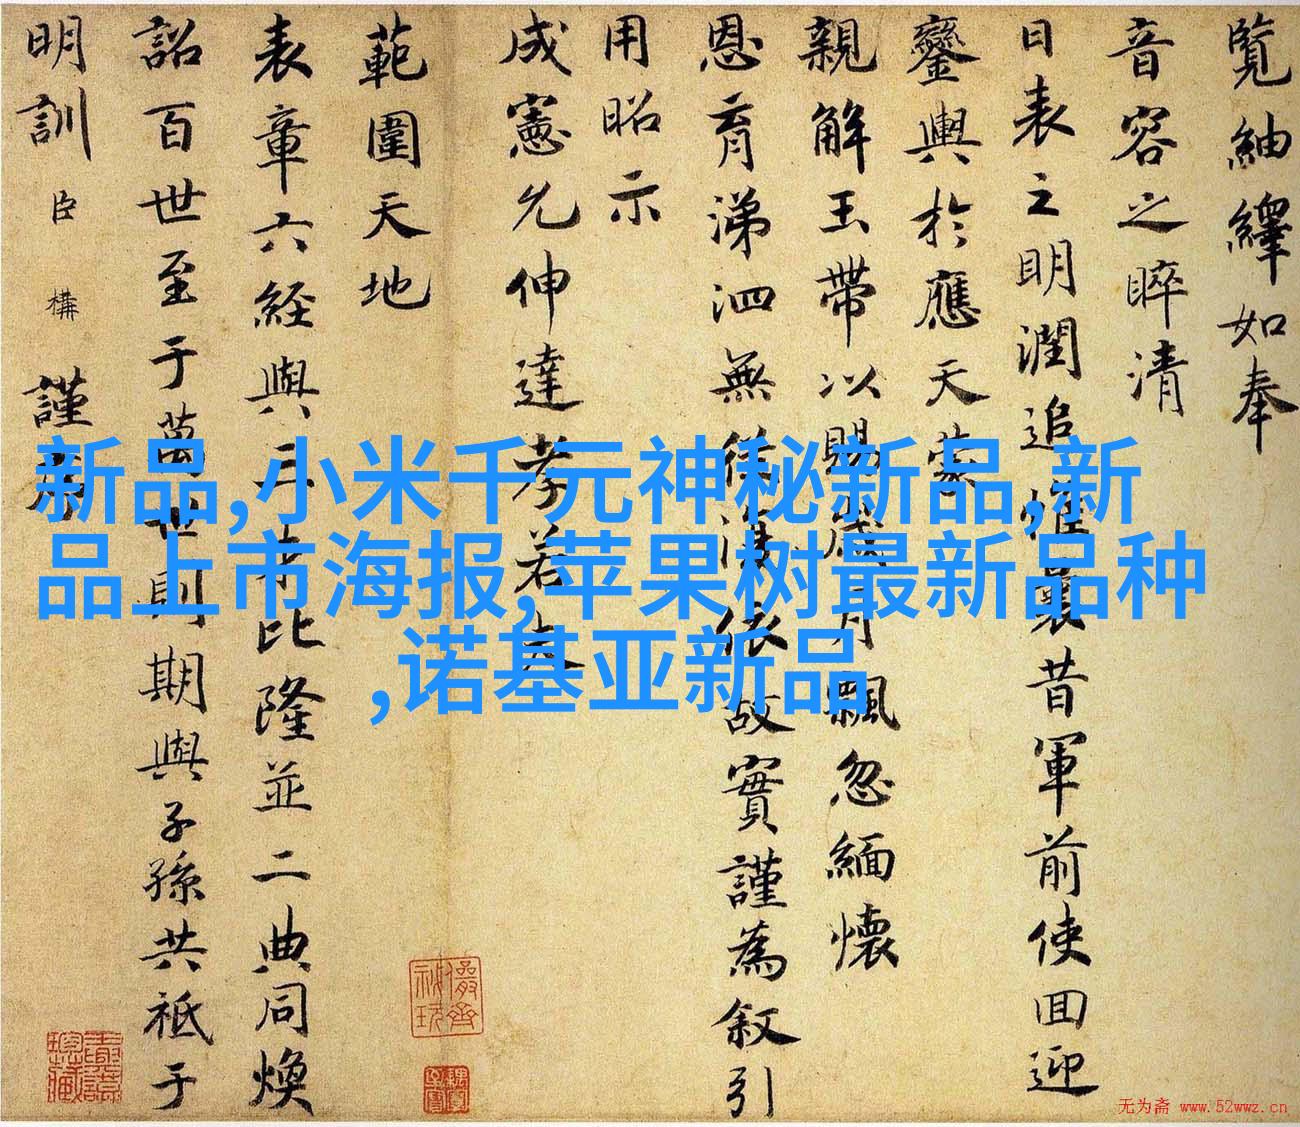 覽紬繹如奉
音容之睟清
日表之明潤追惟曩昔軍前使回迎
鑾輿於應天蒙
親解玉帶以賜歲月飄忽緬懷
恩育涕泗無從依故實謹為叙引
用昭示
成憲允伸達孝若夫
範圍天地
表章六経與三比隆並二典同煥
詔百世至于萬世則期與子孫共祗于
明訓臣構謹序
新品,小米千元神秘新品,新
品上市海报,苹果树最新品种
,诺基亚新品
无为斋 www.52wwz.cn